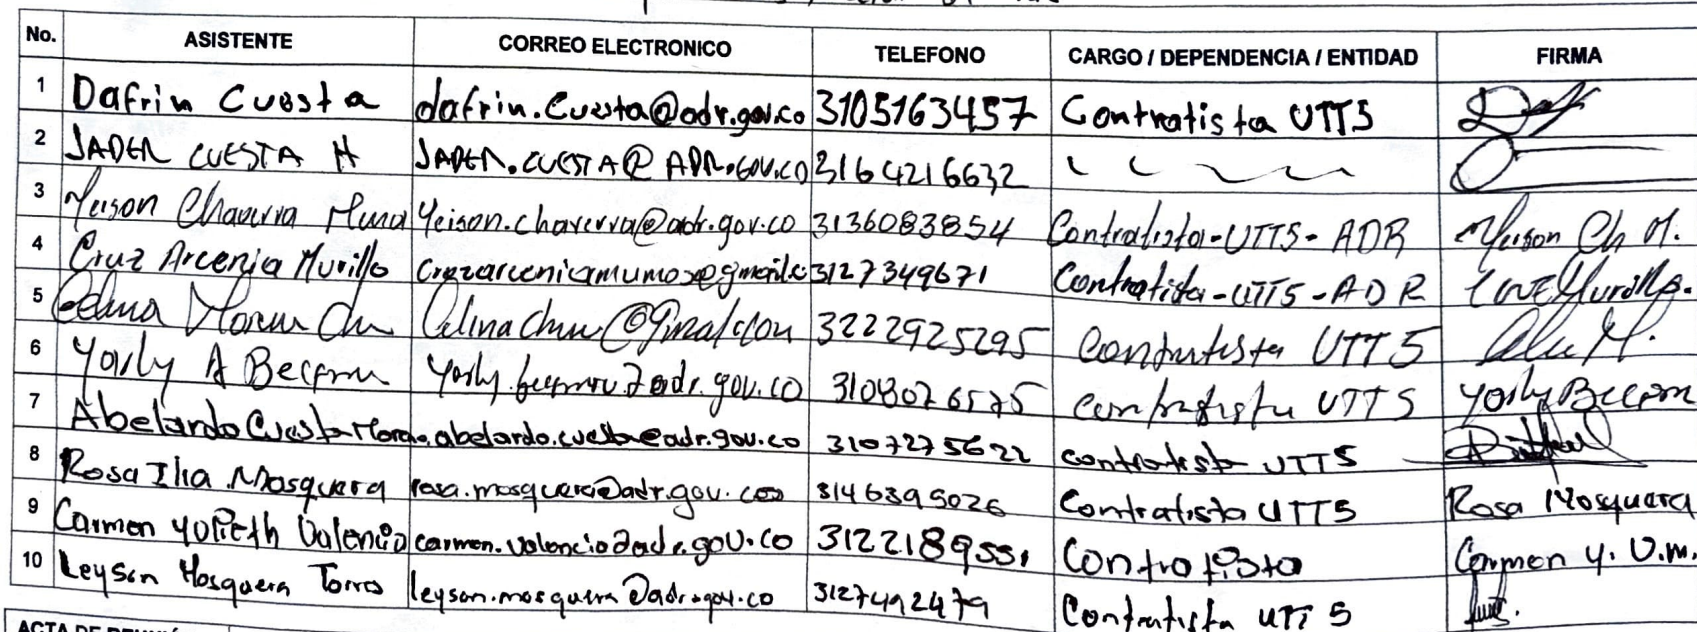 No. ASISTENTE CORREO ELECTRONICO TELEFONO CARGO / DEPENDENCIA / ENTIDAD FIRMA
1 Dafrin Cuesta dafrin.Cuesta@adr.gov.co 3105163457 Contratista UTT5
2 JADER CUESTA H JADER.CUESTA@ADR.GOV.CO 3164216632
3 Yeison Chaverra Mena Yeison.chaverra@adr.gov.co 3136083854 Contratista-UTT5-ADR Yeison Ch M.
4 Cruz Arcenia Murillo 3127349671 Contratista-UTT5-ADR
5 Celina 3222925295 Contratista UTT5
6 Yorly A Becerra 3108076575 contratista UTT5 Yorly Becerra
7 Abelardo Cuesta abelardo.cuesta@adr.gov.co 3107275622 contratista UTT5
8 Rosa Ilia Mosquera rosa.mosquera@adr.gov.co 3146395026 Contratista UTT5 Rosa Mosquera
9 Carmen Yolieth Valencia carmen.valencia@adr.gov.co 3122189551 Contratista Carmen Y. V.M.
10 Leyson Mosquera Torres leyson.mosquera@adr.gov.co 3127492479 Contratista UTT 5